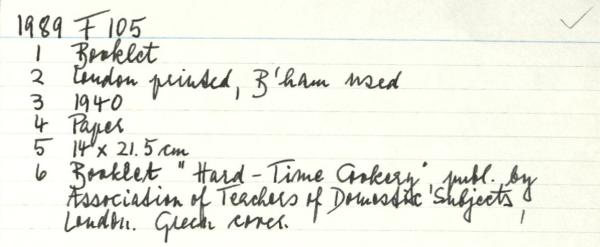 1989 F 105
1 Booklet
2 London printed, B'ham used
3 1940
4 Paper
5 14 x 21.5 cm
6 Booklet "Hard-Time Cookery" publ. by
Association of Teachers of Domestic Subjects,
London. Green cover.